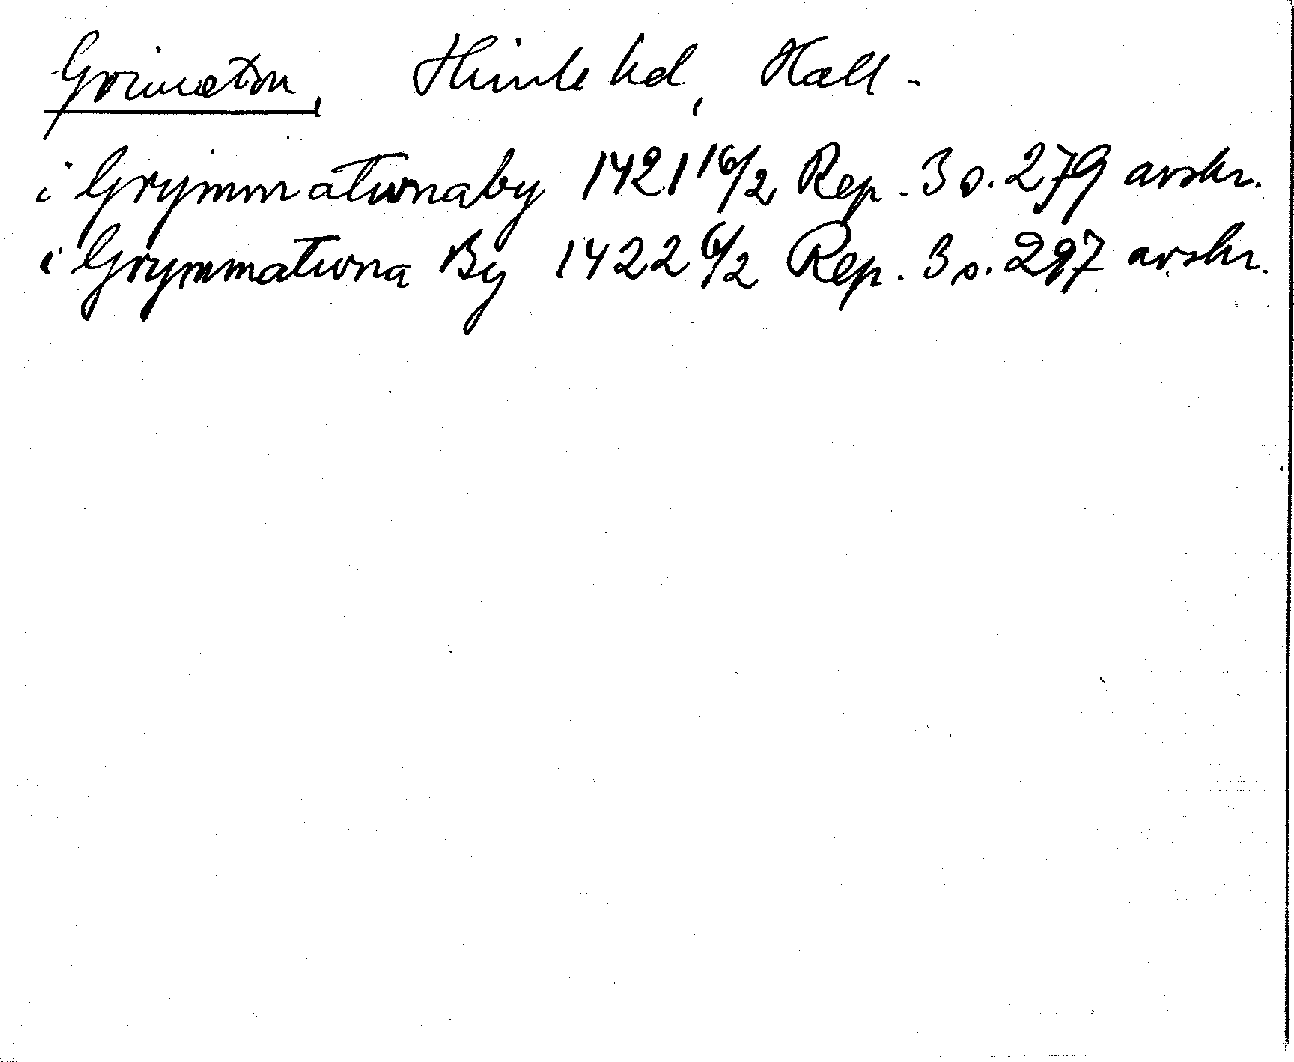 Grimeton, Himle hd, Hall.
i Grymmatunaby 1421 16/2 Rep. 3 s. 279 avskr.
i Grymmatuna By 1422 6/2 Rep. 3 s. 297 avskr.